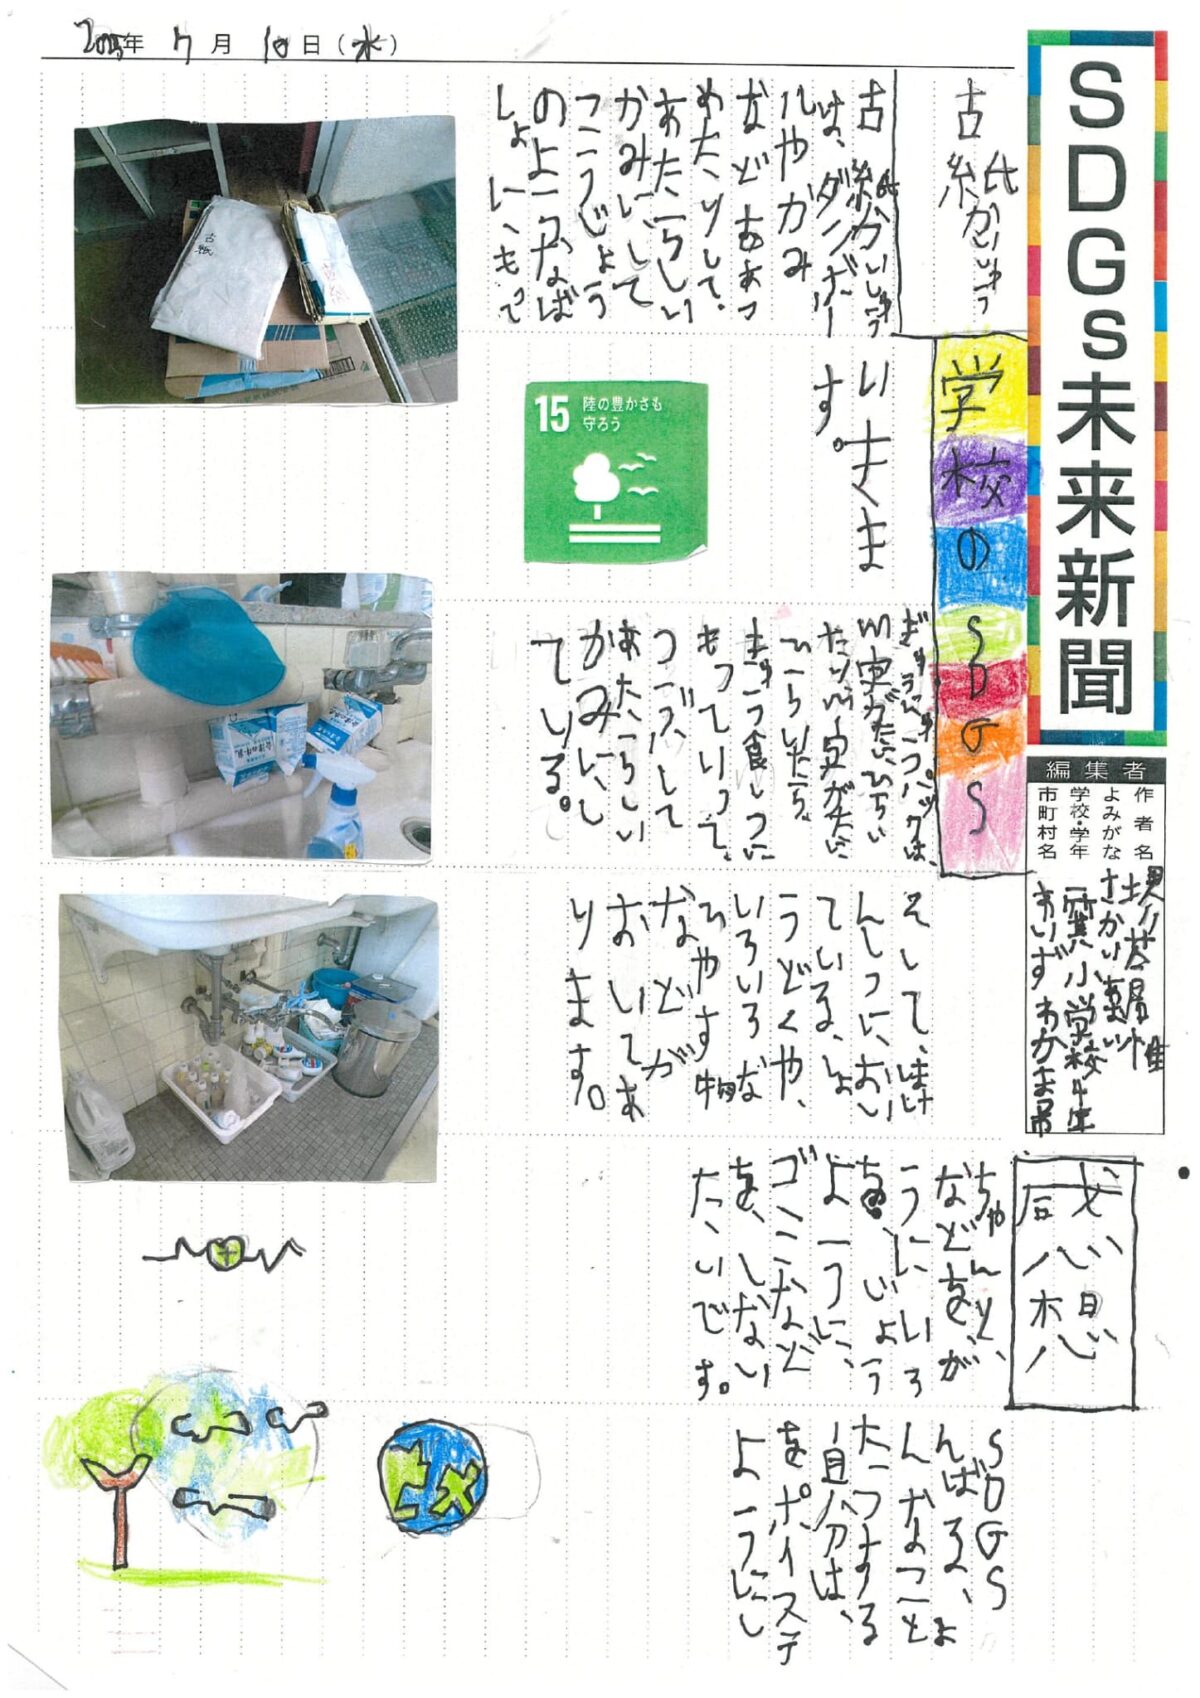 2025年7月10日(水)
SDGs未来新聞
編集者
作者名
よみがな さかい
学校・学年 一箕小学校4年
市町村名 あいずわかま市
学校のSDGS
古紙かいしゅう
古紙かいしゅう
は、ダンボー
ルやかみ
などをあつ
めたりして、
あたらしい
かみにして
こうじょう
のようなば
しょに、もって
いきま
す。
15 陸の豊かさも
守ろう
古紙
ぎゅうにゅうパックは、
ひらいたら、
きゅう食しつに
もっていって、
つぶして
あたらしい
かみにし
ている。
そして、ほけ
んしつに、おい
ている、しょ
うどくや、
いろいろな
ひやす物
などが
おいてあ
ります。
感想
ちゃんと、
などを、が
うにいろ
を、いよう
ように、
ゴミなど
を、しない
たいです。
SDGS
んばる、よ
んなこと
たつする
自分は、
をポイステ
ようにし